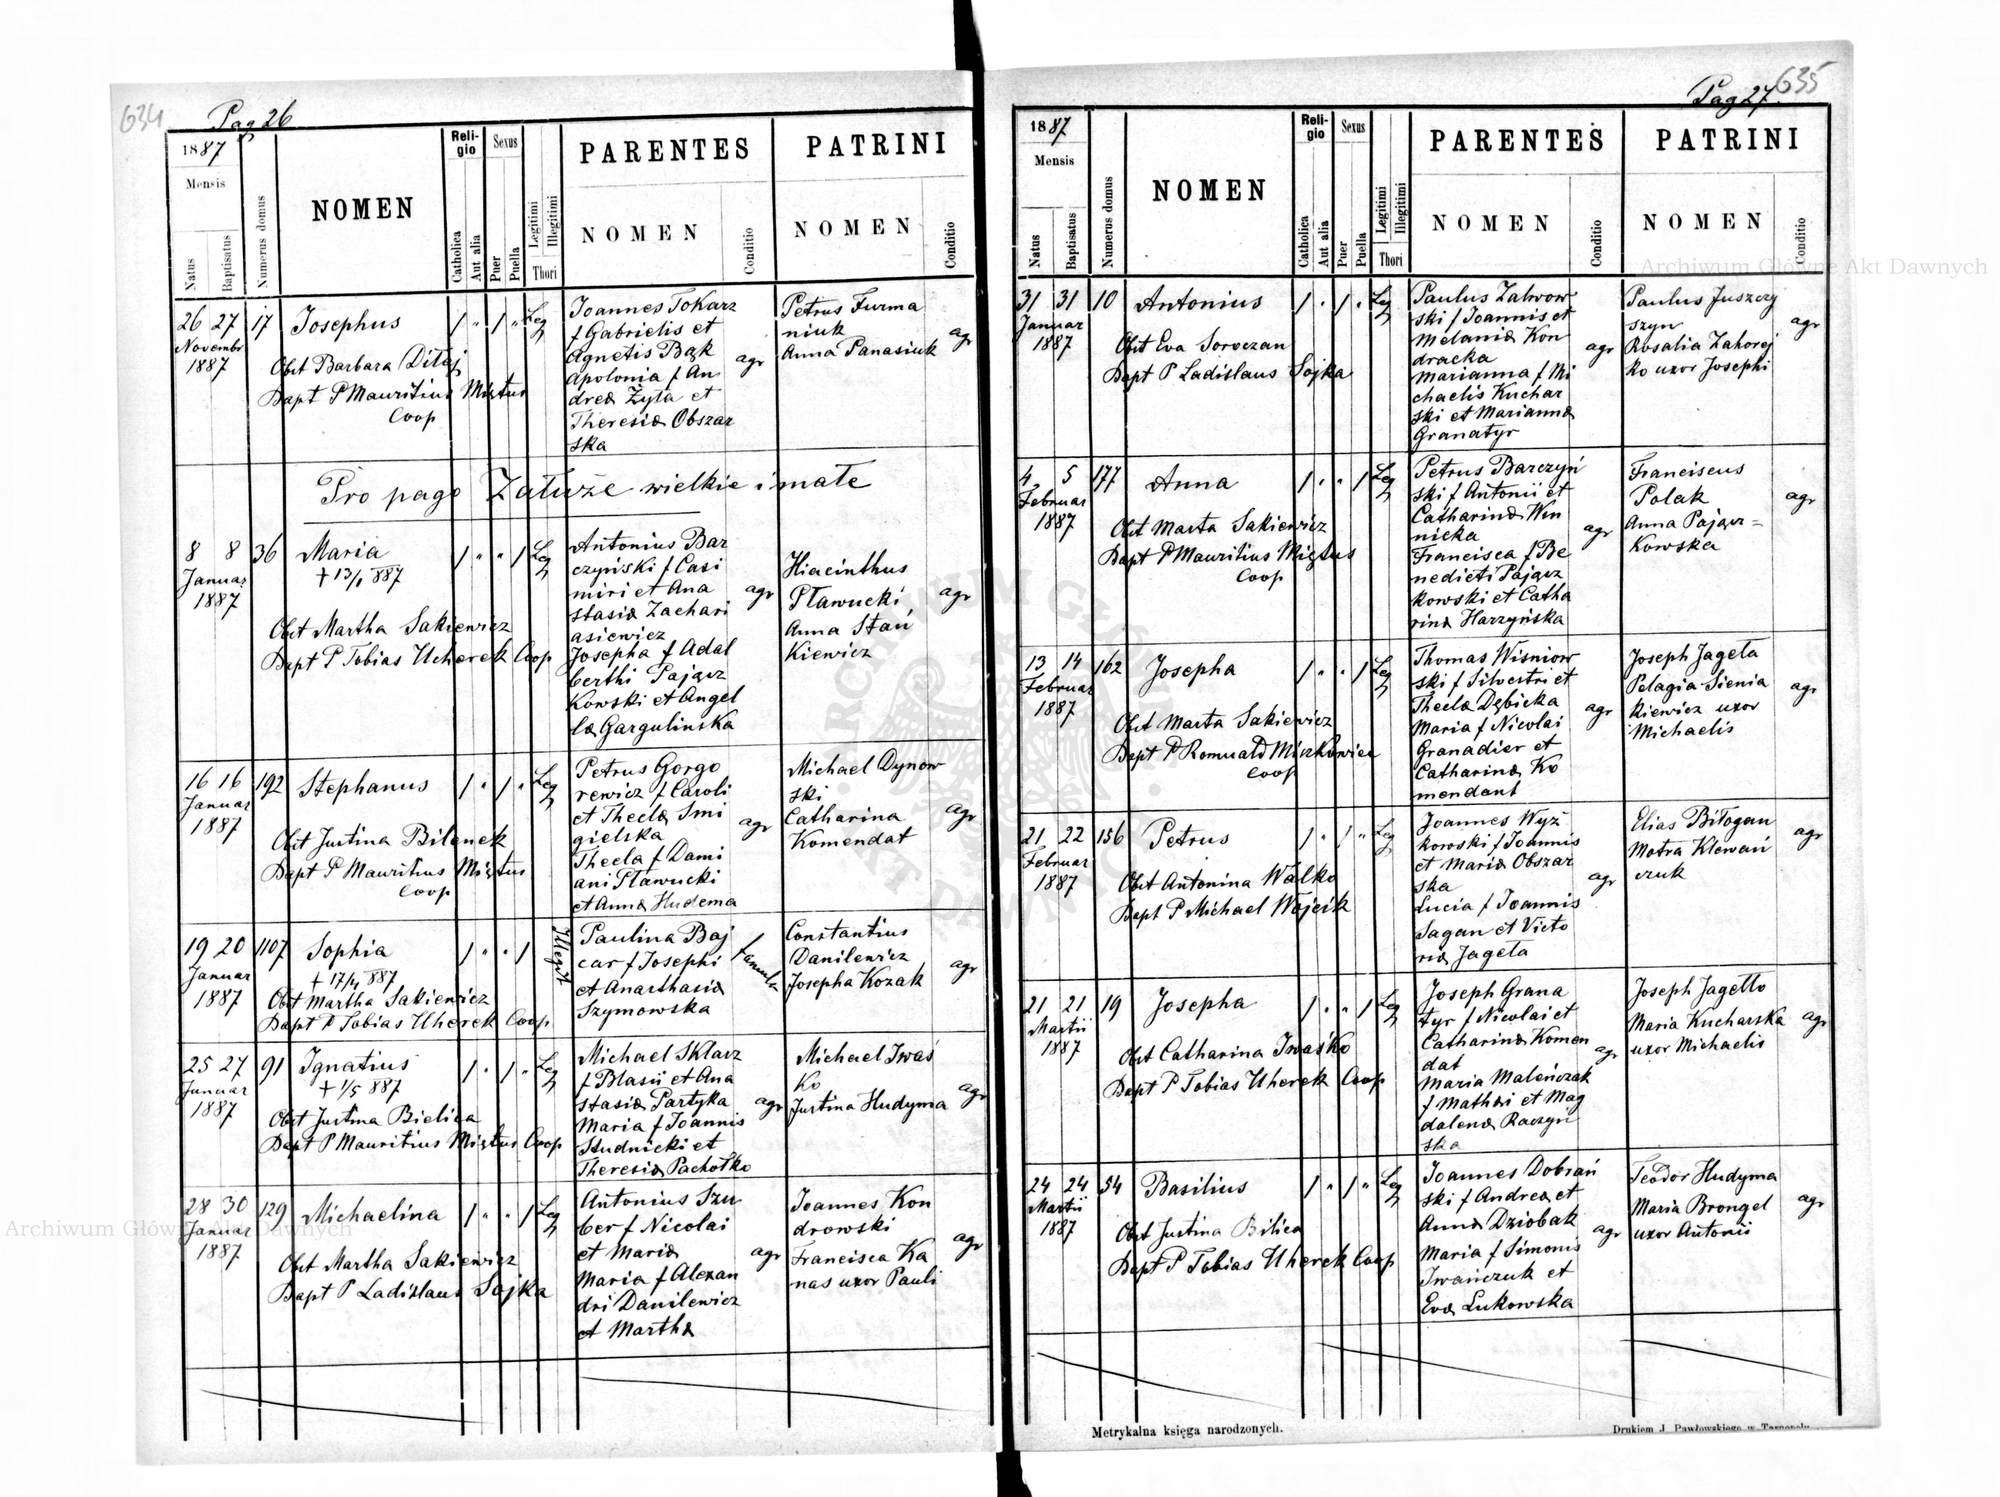 634
Pag 26
1887
Mensis
Natus
Baptisatus
Numerus domus
NOMEN
Reli-
gio
Catholica
Aut alia
Sexus
Puer
Puella
Legitimi
Illegitimi
Thori
PARENTES
NOMEN
Conditio
PATRINI
NOMEN
Conditio
26 27 17 Josephus / " / " Leg
Novembr
1887
Obst Barbara Ditaj
Bapt P Mauritius Miętus
Coop
Joannes Tokarz
f Gabrielis et
Agnetis Bąk
Apolonia f An
dreæ Żyła et
Theresiæ Obszar
ska
agr
Petrus Furma
niuk
Anna Panasiuk
agr
Pro pago Załuże wielkie i małe
8 8 36 Maria / " " / Leg
Januar
1887
+ 13/1 887
Obst Martha Sakiewicz
Bapt P Tobias Uherek Coop
Antonius Bar
czyński f Casi
miri et Ana
stasiæ Zachari
asiewicz
Josepha f Adal
berthi Pającz
kowski et Angel
læ Gargulinska
agr
Hiacinthus
Pławucki
Anna Stan
kiewicz
agr
16 16 192 Stephanus / " / " Leg
Januar
1887
Obst Justina Bilenek
Bapt P Mauritius Miętus
Coop
Petrus Gorgo
rewicz f Caroli
et Theclæ Smi
gielska
Thecla f Dami
ani Pławucki
et Annæ Hudema
agr
Michael Dynow
ski
Catharina
Komendat
agr
19 20 1107 Sophia / " " / Illegit
Januar
1887
+ 17/4 887
Obst Martha Sakiewicz
Bapt P Tobias Uherek Coop
Paulina Baj
car f Josephi
et Anasthasiæ
Szymowska
famula
Constantius
Danilewicz
Josepha Kozak
agr
25 27 91 Ignatius / " / " Leg
Januar
1887
+ 1/5 887
Obst Justina Bielica
Bapt P Mauritius Miętus Coop
Michael Sklarz
f Blasii et Ana
stasiæ Partyka
Maria f Joannis
Studnicki et
Theresiæ Pachołko
agr
Michael Iwaś
ko
Justina Hudyma
agr
28 30 129 Michaelina / " " / Leg
Januar
1887
Obst Martha Sakiewicz
Bapt P Ladislaus Sojka
Antonius Szu
ber f Nicolai
et Mariæ
Maria f Alexan
dri Danilewicz
et Marthæ
agr
Joannes Kon
drowski
Francisca Ka
nas uxor Pauli
agr
635
Pag 27
1887
Mensis
Natus
Baptisatus
Numerus domus
NOMEN
Reli-
gio
Catholica
Aut alia
Sexus
Puer
Puella
Legitimi
Illegitimi
Thori
PARENTES
NOMEN
Conditio
PATRINI
NOMEN
Conditio
31 31 10 Antonius / " / " Leg
Januar
1887
Obst Eva Soroczan
Bapt P Ladislaus Sojka
Paulus Zalwow
ski f Joannis et
Melaniæ Kon
dracka
Marianna f Mi
chaelis Kuchar
ski et Mariannæ
Granatyr
agr
Paulus Juszczy
szyn
Rosalia Zahorej
ko uxor Josephi
agr
4 5 177 Anna / " " / Leg
Februar
1887
Obst Marta Sakiewicz
Bapt P Mauritius Miętus
Coop
Petrus Barczyń
ski f Antonii et
Catharinæ Win
nicka
Francisca f Be
nedicti Pającz
kowski et Catha
rinæ Harzyńska
agr
Franciscus
Polak
Anna Pającz=
kowska
agr
13 14 162 Josepha / " " / Leg
Februar
1887
Obst Marta Sakiewicz
Bapt P Romuald Miszkowicz
Coop
Thomas Wisniow
ski f Silvestri et
Theclæ Dębicka
Maria f Nicolai
Granadier et
Catharinæ Ko
mendant
agr
Joseph Jageła
Pelagia Sienia
kiewicz uxor
Michaelis
agr
21 22 156 Petrus / " / " Leg
Februar
1887
Obst Antonina Walko
Bapt P Michael Wojcik
Joannes Wyż
kowski f Joannis
et Mariæ Obszar
ska
Lucia f Joannis
Sagan et Victo
riæ Jageła
agr
Elias Biłogan
Motra Klewań
czuk
agr
21 21 19 Josepha / " " / Leg
Martii
1887
Obst Catharina Iwaśko
Bapt P Tobias Uherek Coop
Joseph Grana
tyr f Nicolai et
Catharinæ Komen
dat
Maria Maleńczak
f Mathæi et Mag
dalenæ Raczyń
ska
agr
Joseph Jagełło
Maria Kucharska
uxor Michaelis
agr
24 24 54 Basilius / " / " Leg
Martii
1887
Obst Justina Bilica
Bapt P Tobias Uherek Coop
Joannes Dobrań
ski f Andreæ et
Annæ Dziobak
Maria f Simonis
Iwańczuk et
Evæ Lukowska
agr
Teodor Hudyma
Maria Brongel
uxor Antonii
agr
Metrykalna księga narodzonych.
Drukiem J. Pawłowskiego w Tarnopolu
Archiwum Główne Akt Dawnych
Archiwum Główne Akt Dawnych